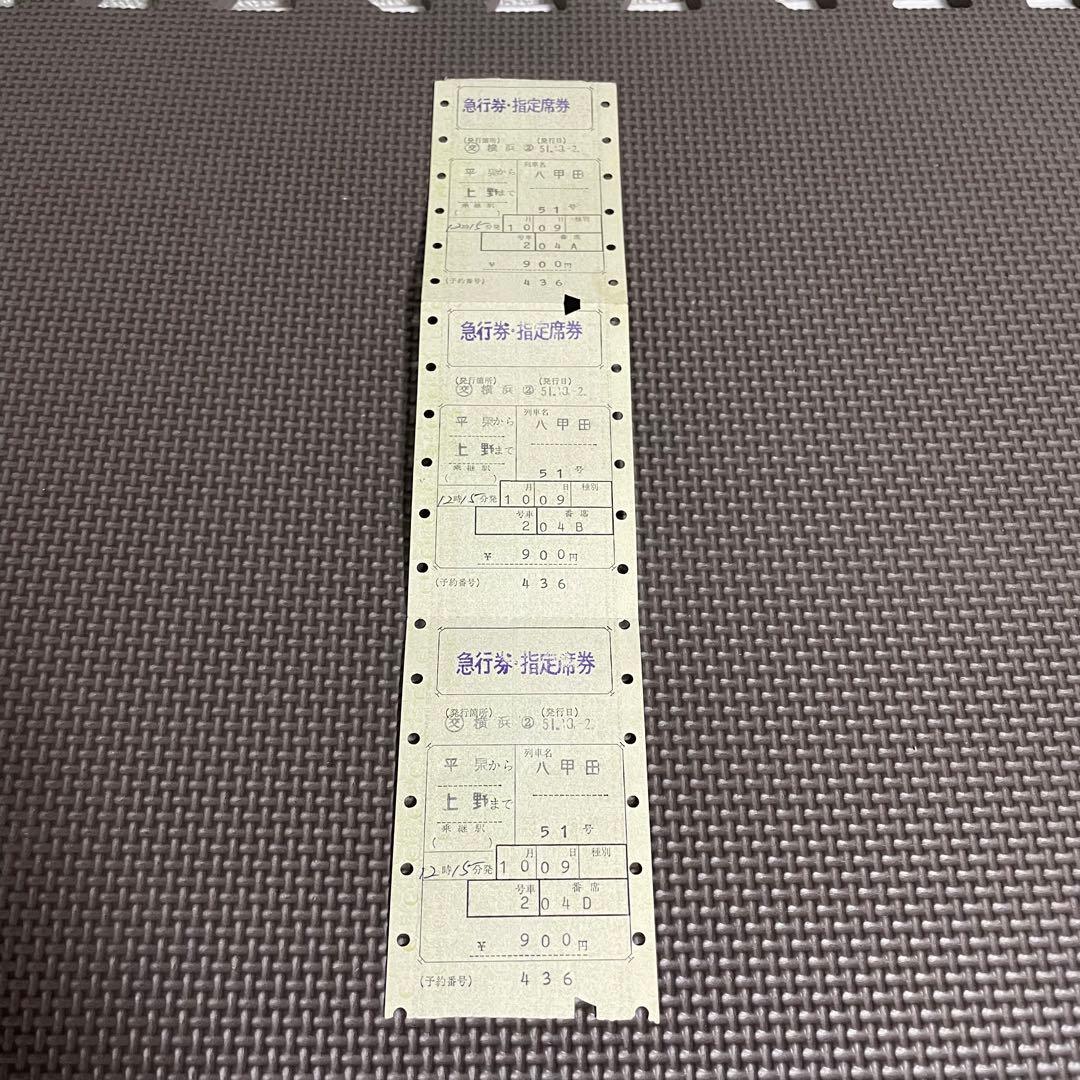 急行券・指定席券
(発行箇所) (発行日)
交 横浜 ② 51.10.-2.
平泉から 列車名
八甲田
上野まで
乗継駅 51号
( )
月 日 種別
12時15分発 10 09
号車 番席
2 04A
¥ 900円
(予約番号) 436
急行券・指定席券
(発行箇所) (発行日)
交 横浜 ② 51.10.-2.
平泉から 列車名
八甲田
上野まで
乗継駅 51号
( )
月 日 種別
12時15分発 10 09
号車 番席
2 04B
¥ 900円
(予約番号) 436
急行券・指定席券
(発行箇所) (発行日)
交 横浜 ② 51.10.-2.
平泉から 列車名
八甲田
上野まで
乗継駅 51号
( )
月 日 種別
12時15分発 10 09
号車 番席
2 04D
¥ 900円
(予約番号) 436